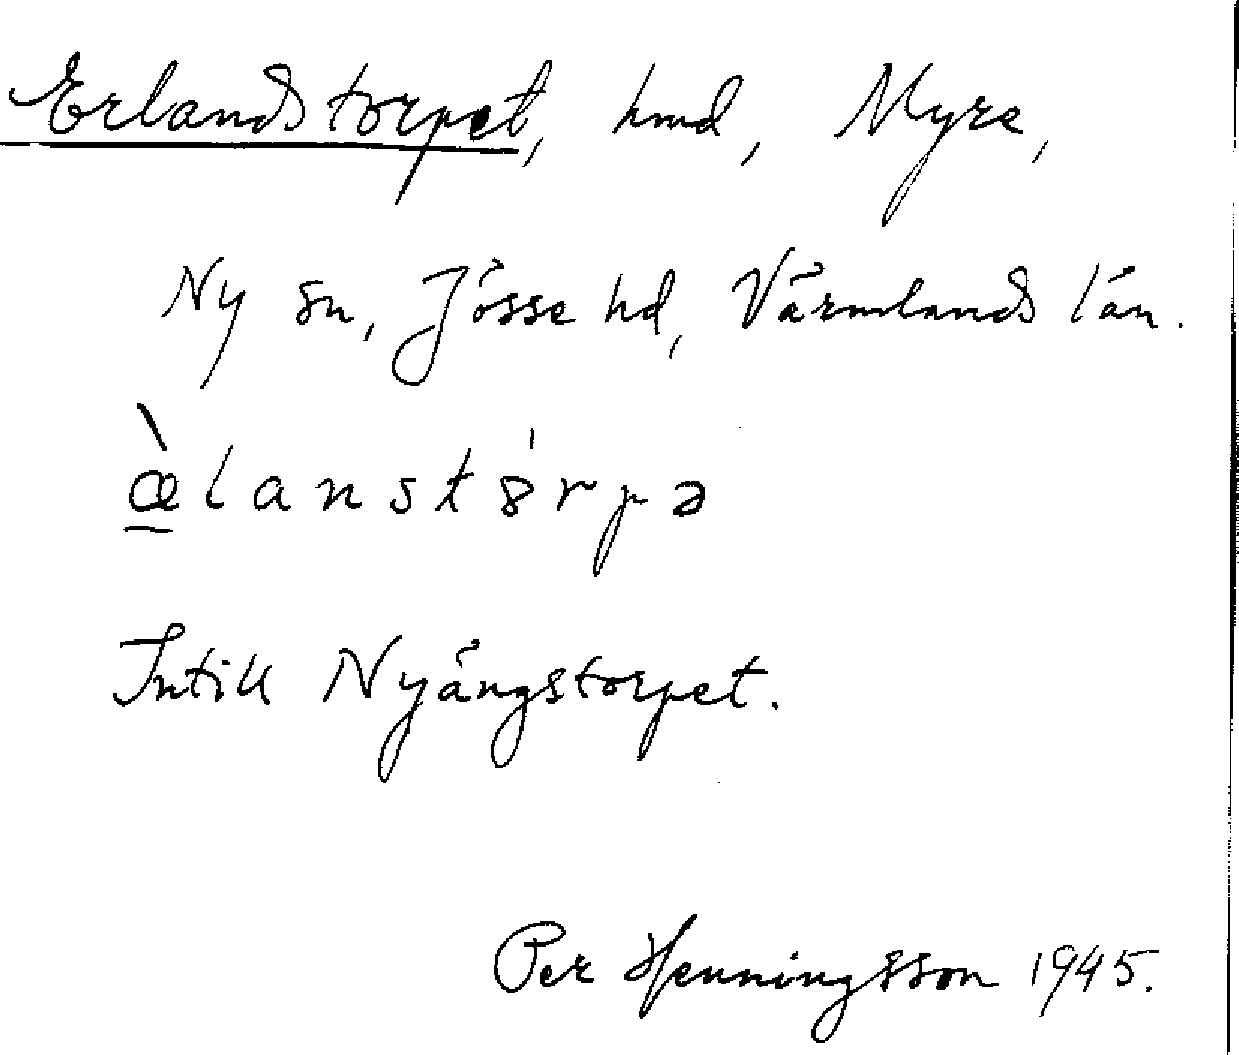 Erlandstorpet, hmd, Myre,
Ny sn, Jösse hd, Värmlands län.
æ̠̀lanstȣ́rpə
Intill Nyängstorpet.
Per Henningsson 1945.